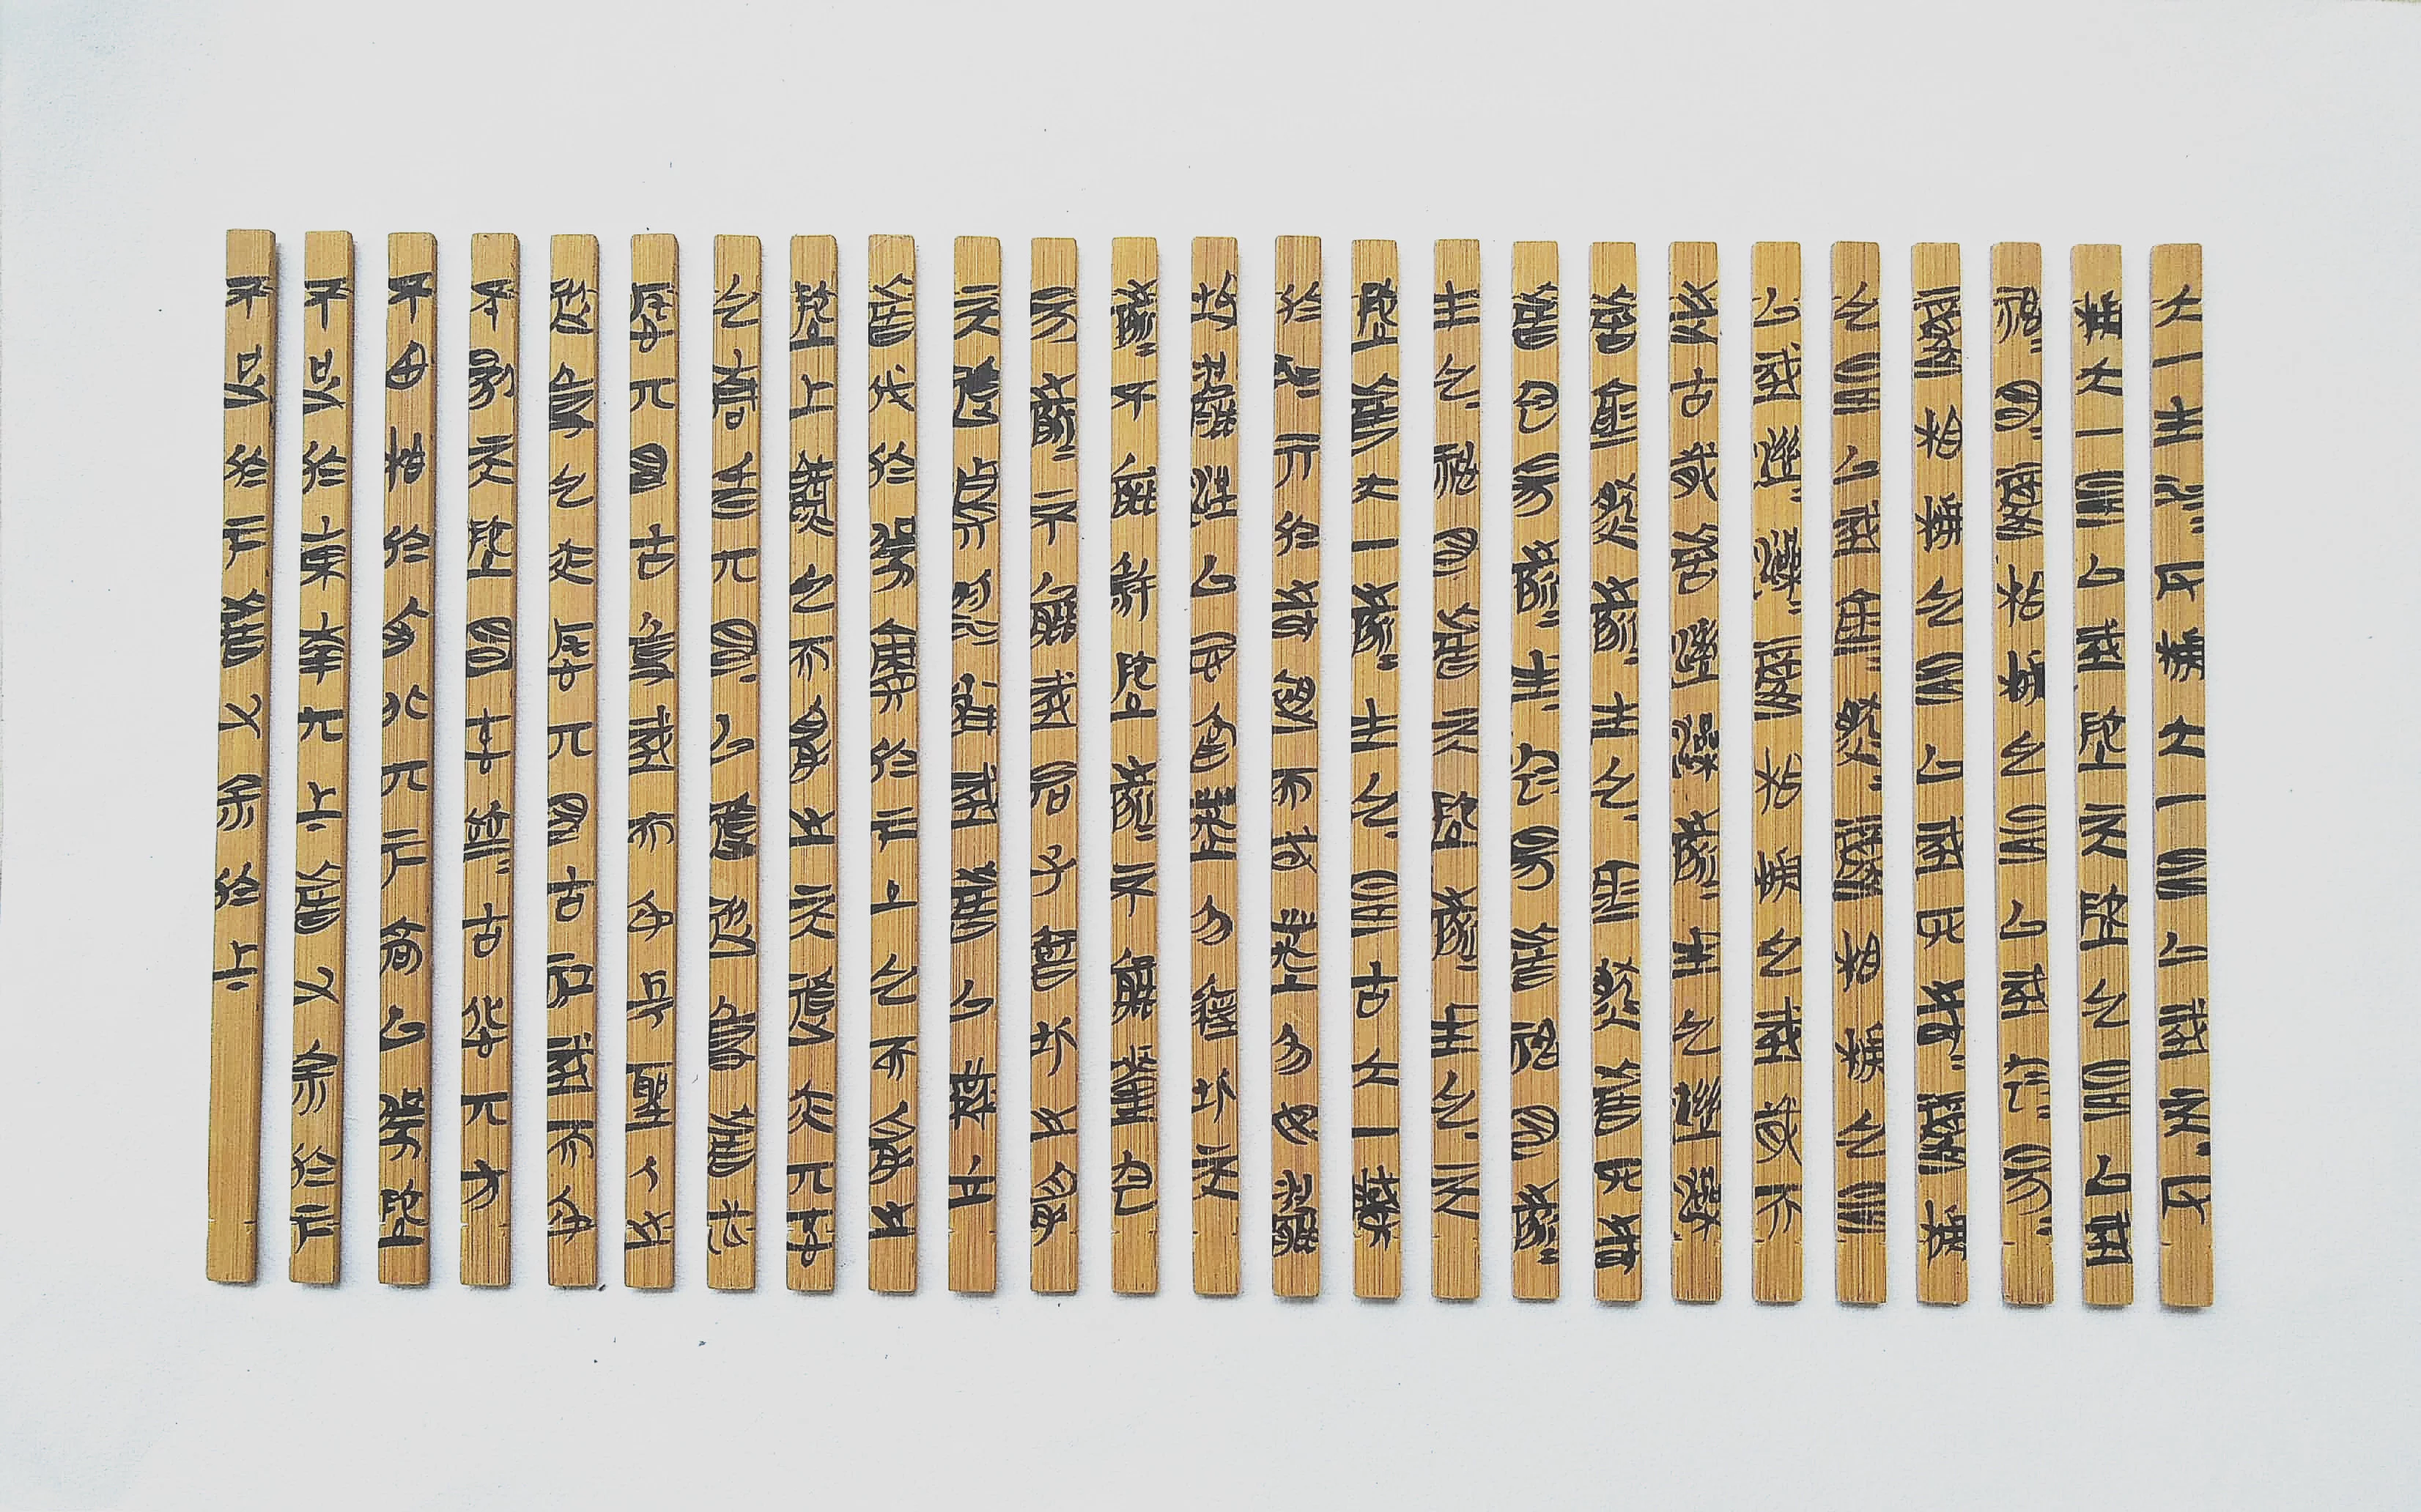 大一生水反輔大一是以成天反
輔大一是以成地天地也是以成
神明復相輔也是以成陰陽
復相輔也是以成四時復輔
也是以成滄熱復相輔也是
以成濕燥復相輔也成歲而
止古歲者濕燥之所生也濕燥
者滄熱之所生也滄熱者四時
者陰陽之所生陰陽者神明之所
生也神明者天地之所生也天
地者大一之所生也是古大一藏
於水行於時而或萬勿母
缺一盈以忌為萬勿經此天
之所不能殺地之所不能釐陰
陽之所不能成君子智此之胃
天道貴弱雀成者以益生
者伐於強責於下土也而胃之
地上氣也而胃之天道亦其字
也青昏其名以道從事者必
託其名古事成而身長聖人之
從事也亦託其名古功成而身
不傷天地名字並立古過其方
不思相於天北其下高以強地
不足於東南其上者又余於下
不足於下者又余於上